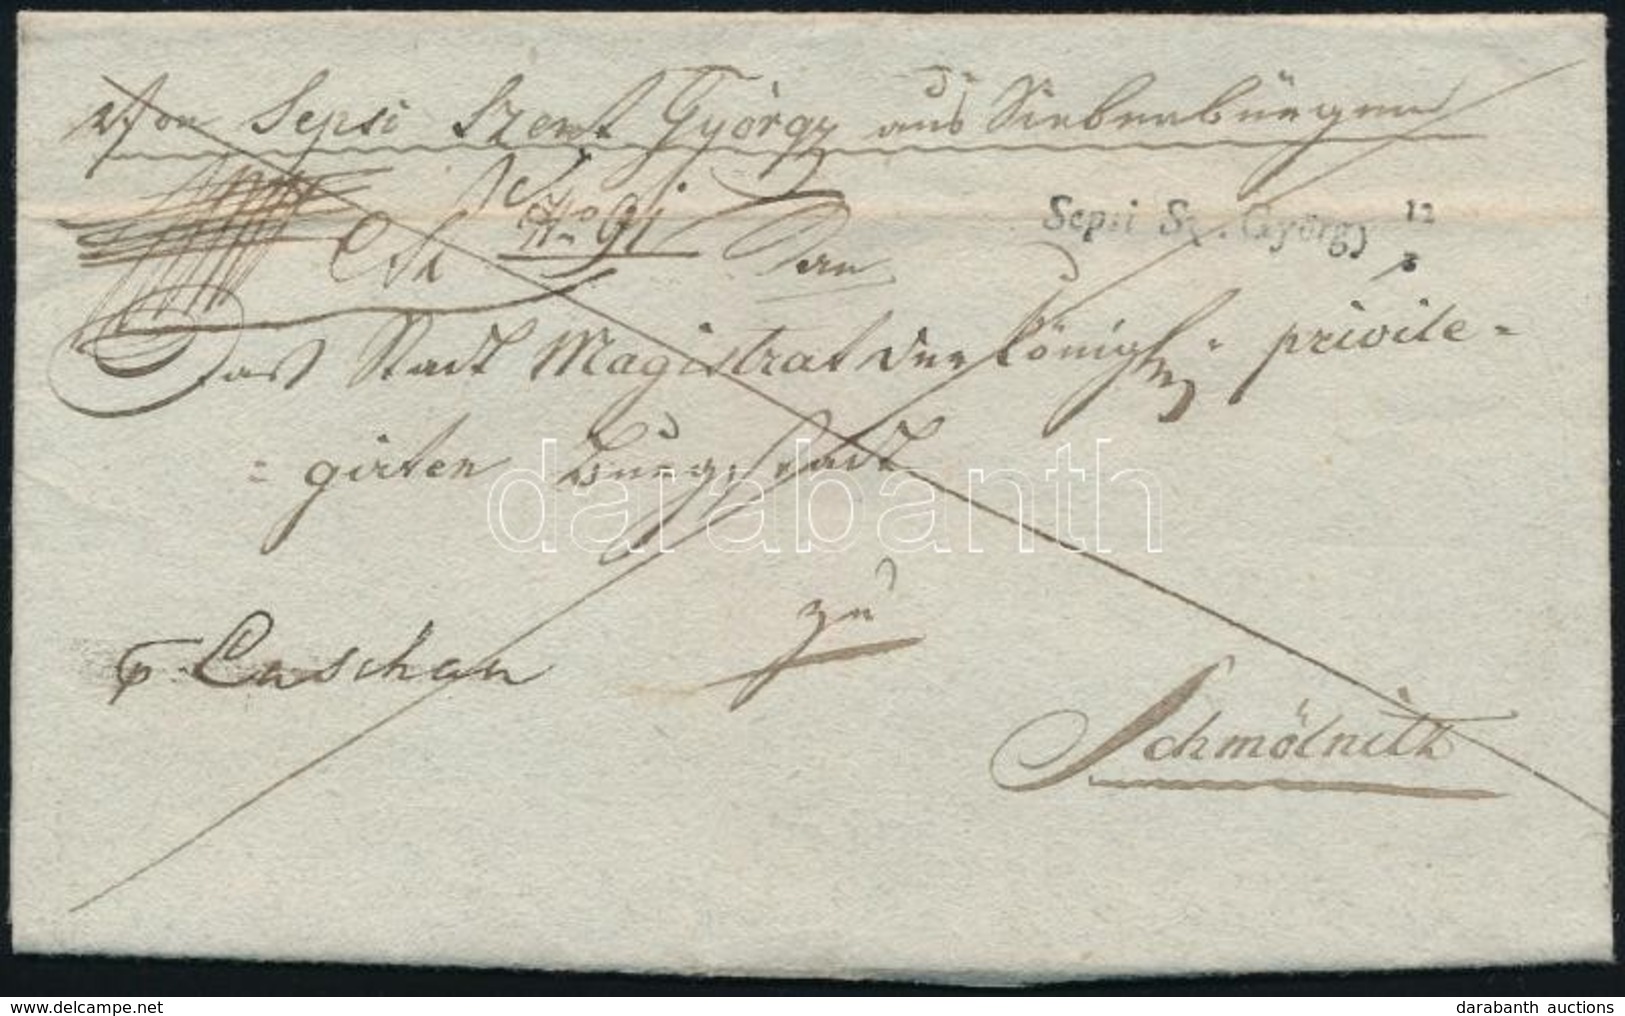 Von Sepsi Szent György aus Siebenbürgen
No 91
Sepsi Sz. György 12
3
Das Stadt Magistrat der Königl: privile=
=girten Burgstadt
darabanth
zu
p. Caschau
Schmölnitz
www.delcampe.net
darabanth auctions